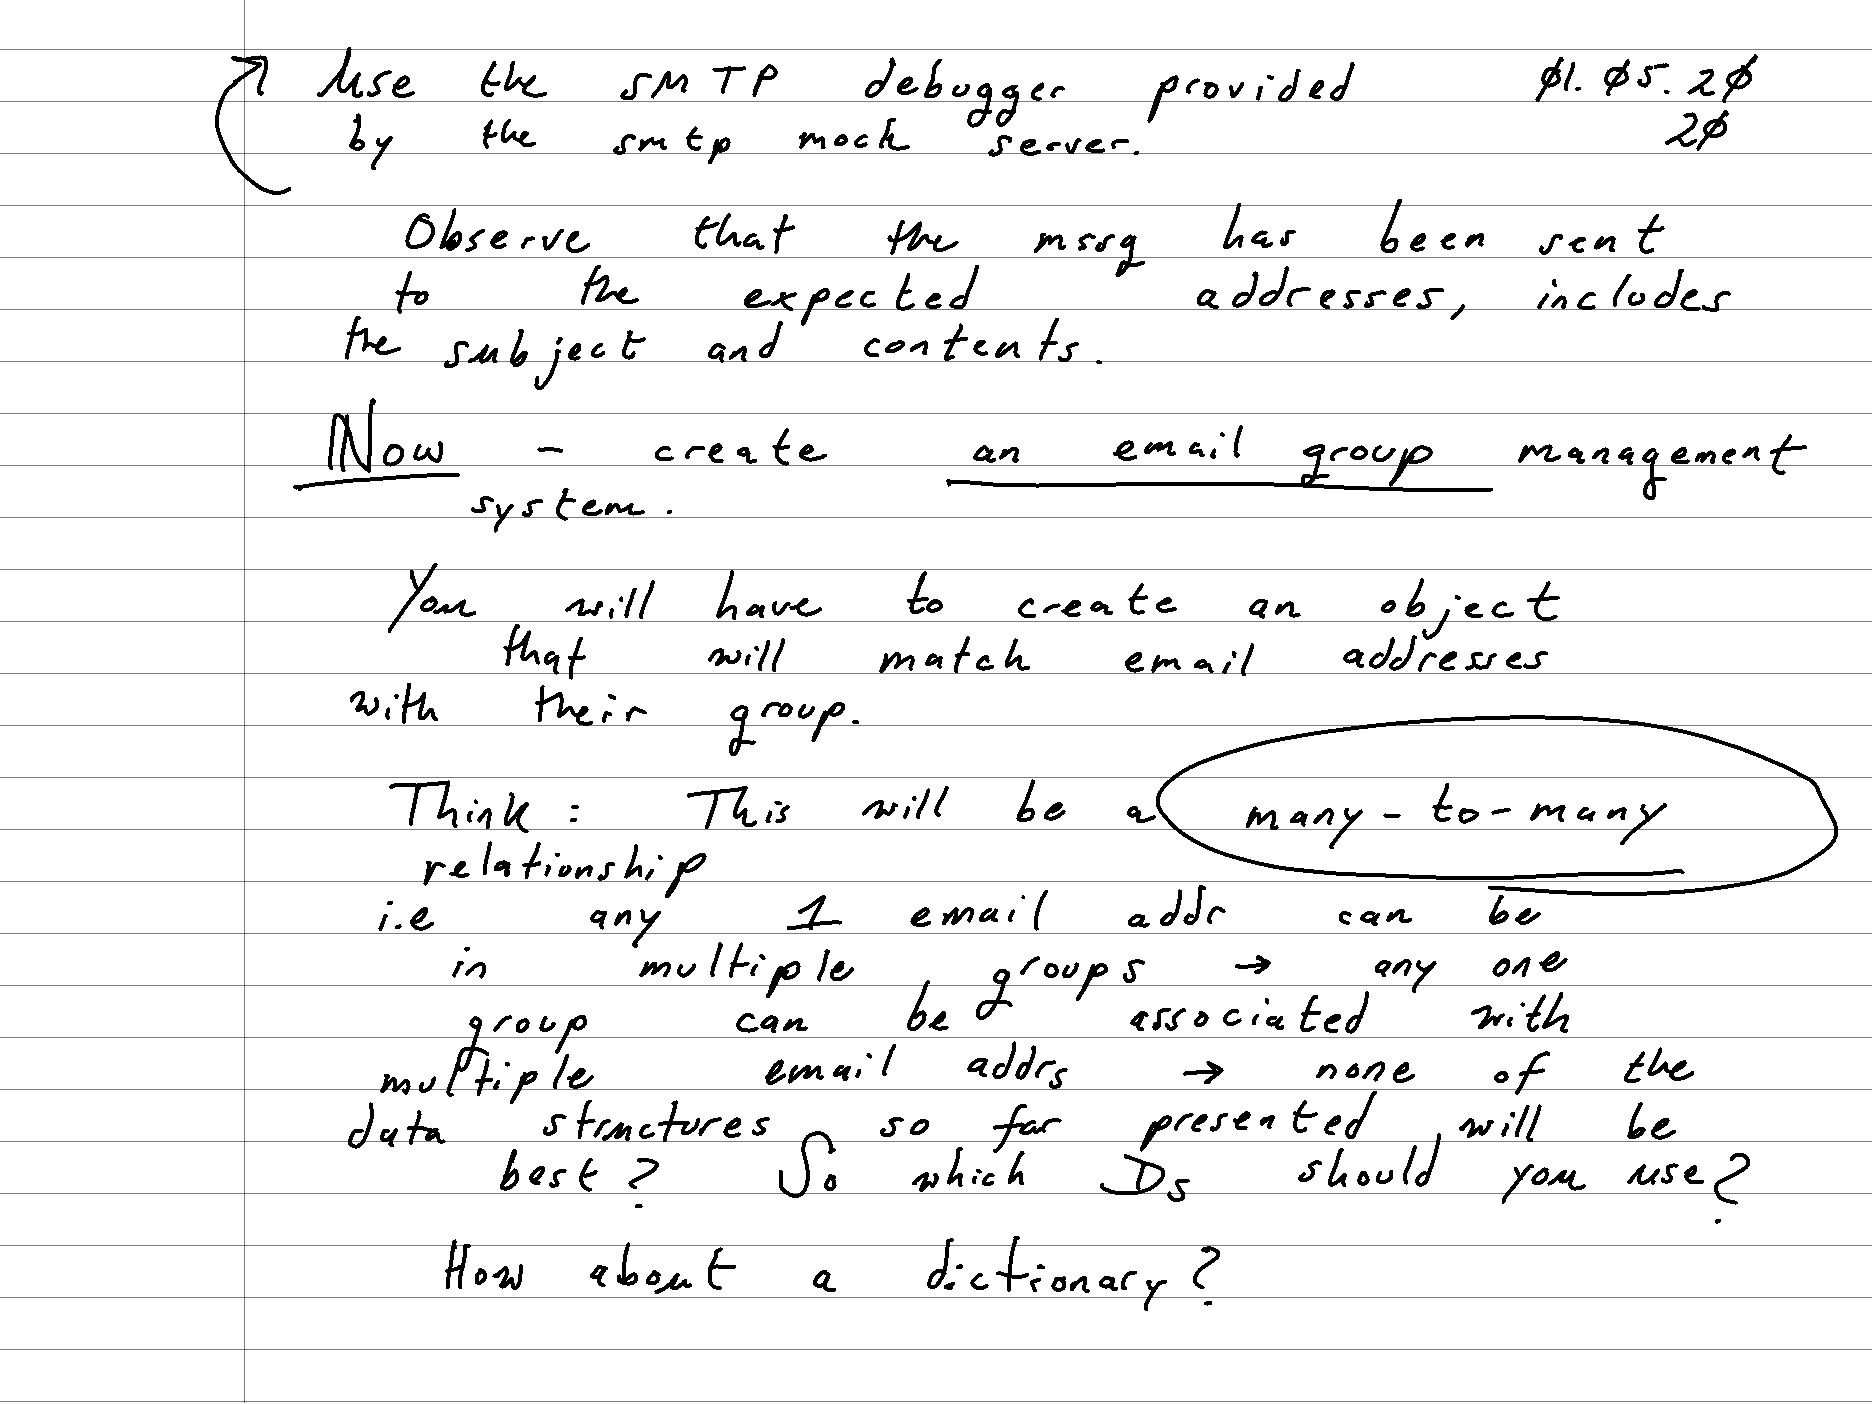 Use the SMTP debugger provided 01.05.20
by the smtp mock server. 20
Observe that the mssg has been sent
to the expected addresses, includes
the subject and contents.
Now - create an email group management
system.
You will have to create an object
that will match email addresses
with their group.
Think: This will be a many-to-many
relationship
i.e any 1 email addr can be
in multiple groups → any one
group can be associated with
multiple email addrs → none of the
data structures so far presented will be
best? So which Ds should you use?
How about a dictionary?